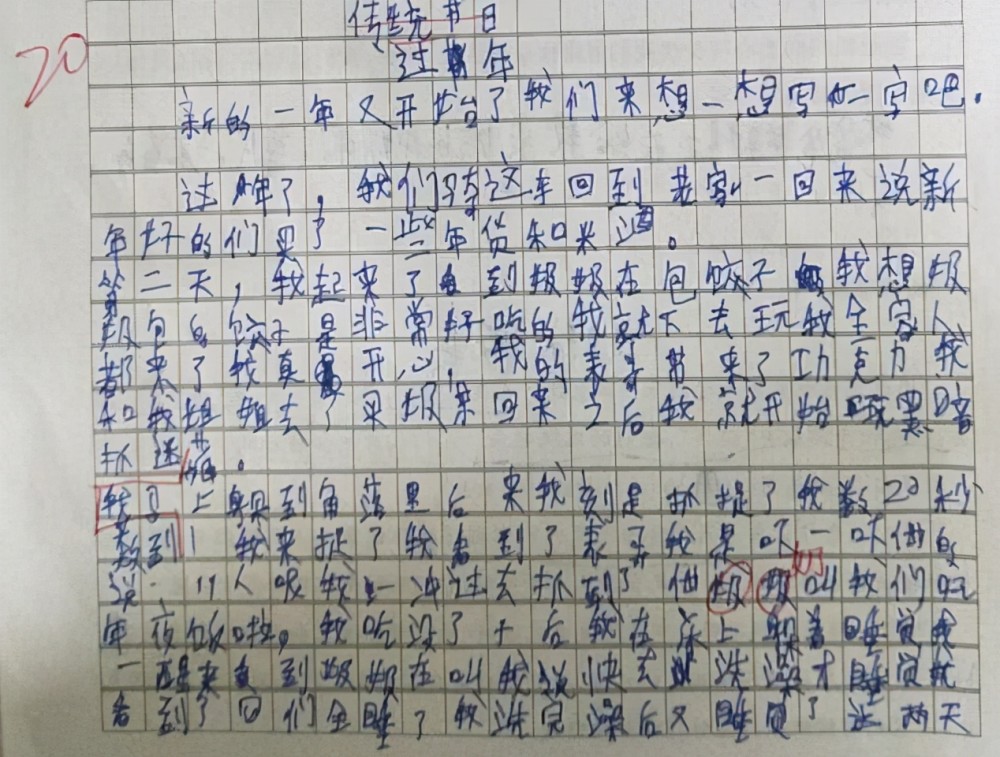 20
传统节日
过年
新的一年又开始了我们来想一想写一写吧.
过年了,我们这车回到老家一回来说新
年好的们买了一些年货和米酒。
第二天,我起来了到级级在包饺子我想级
级包的饺子是非常好吃的我就下去玩我全家人
都来了我真是开心,我的表哥带来了巧克力我
和我姐姐去了买极来回来之后我就开始玩黑暗
抓迷藏。
我马上躲到角落里后来我刻是抓捉了我数20秒
数到1我来捉了我看到了表哥我是吓一吓他的
说:11人呢我一冲过去抓到了他级级奶叫我们吃
年夜饭啦,我吃没了十后我在床上躺着睡觉我
一醒来看到级级在叫我说快去洗澡才睡觉就
看到了回们全睡了我洗完澡后又睡觉了这两天